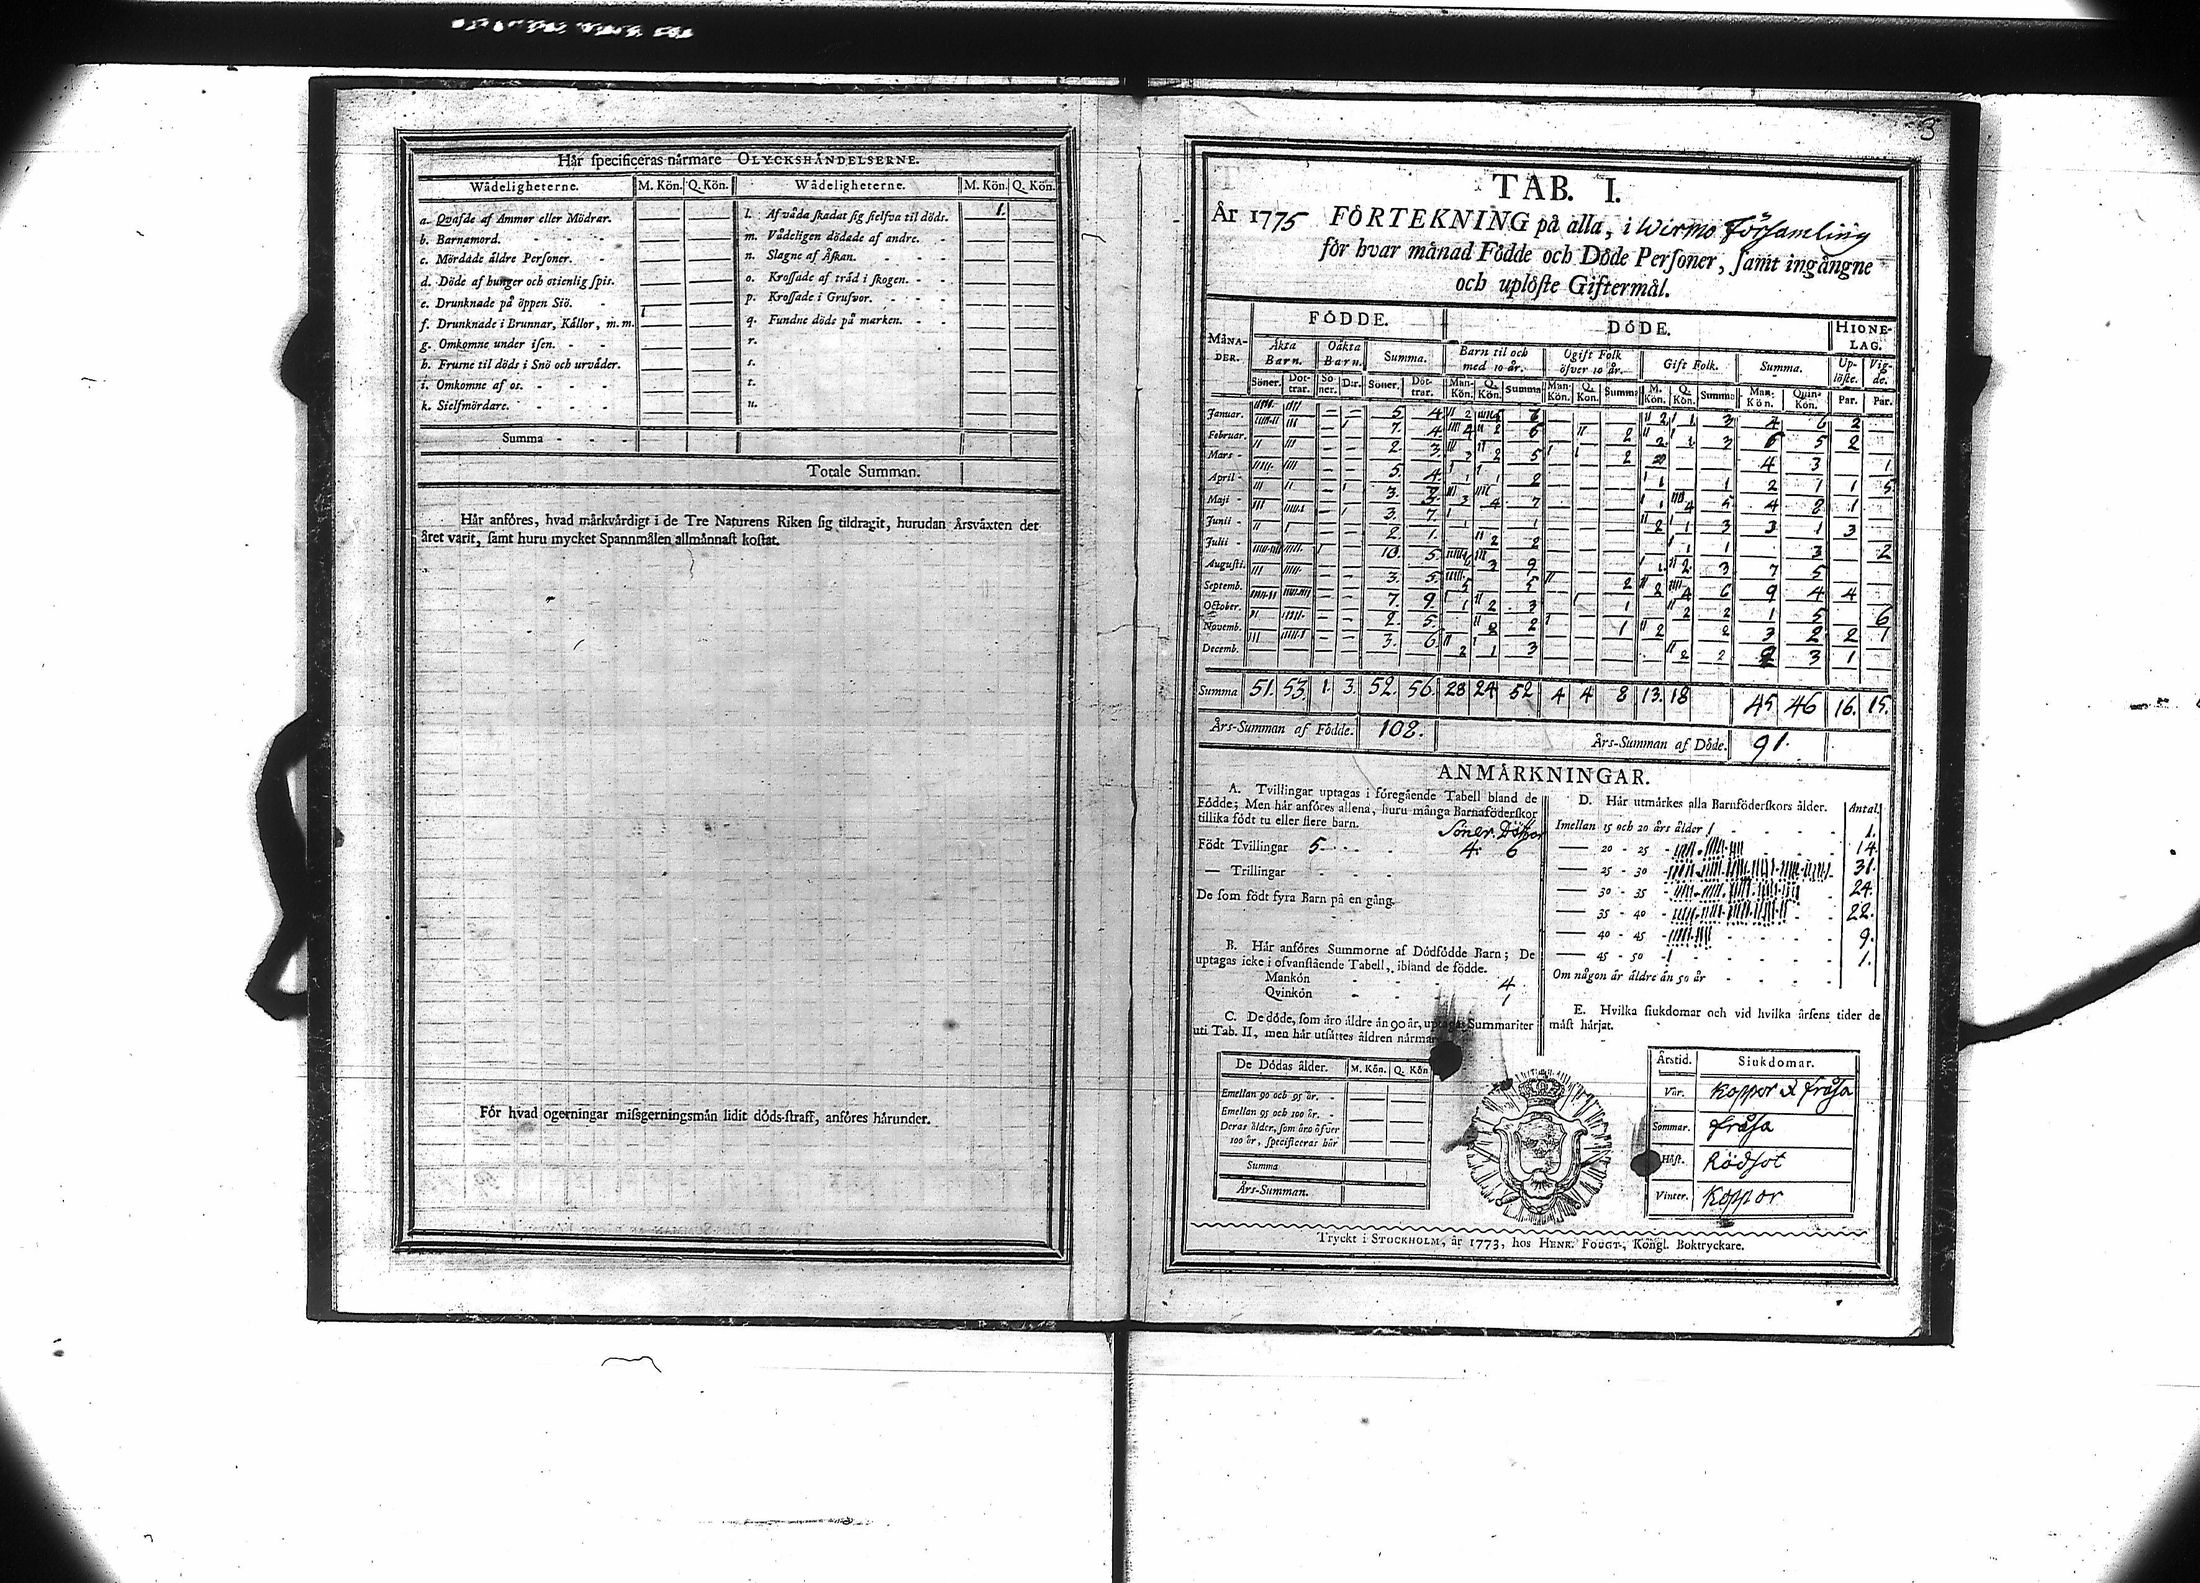 3
Hår specificeras nårmare OLYCKSHÅNDELSERNE.
Wådeligheterne. M. Kön. Q. Kön. Wådeligheterne. M. Kön. Q. Kön.
a. Qvafde af Ammor eller Mödrar. l. Af våda skadat sig sielfva til döds. 1.
b. Barnamord. m. Vådeligen dödade af andre.
c. Mördade åldre Personer. n. Slagne af Åskan.
d. Döde af hunger och otienlig spis. o. Krossade af tråd i skogen.
e. Drunknade på öppen Siö. p. Krossade i Grufvor.
f. Drunknade i Brunnar, Kållor, m. m. q. Fundne döds på marken.
g. Omkomne under isen. r.
h. Frusne til döds i Snö och urvåder. s.
i. Omkomne af os. t.
k. Sielfmördare. u.
Summa
Totale Summan.
Hår anföres, hvad mårkvårdigt i de Tre Naturens Riken sig tildragit, hurudan Årsvåxten det
året varit, samt huru mycket Spannmålen allmånnast kostat.
För hvad ogerningar missgerningsmån lidit döds-straff, anföres hårunder.
TAB. I.
År 1775 FÖRTEKNING på alla, i Wirmo Församling
för hvar månad Födde och Döde Personer, samt ingångne
och uplöste Giftermål.
FÖDDE. DÖDE. HIONE-
LAG.
MÅNA-
DER. Åkta
Barn. Oåkta
Barn. Summa. Barn til och
med 10 år. Ogift Folk
öfver 10 år. Gift Folk. Summa. Up-
löste. Vig-
de.
Söner. Döt-
trar. Sö-
ner. D:r. Söner. Döt-
trar. Man-
Kön. Q.
Kön. Summa Man-
Kön. Q.
Kön. Summa M.
Kön. Q.
Kön. Summa Man-
Kön. Quin-
Kön. Par. Par.
Januar. 5 4 2 6 2 1 3 4 6 2
Februar. 7. 4. 4 2 6 2 2 1 3 6 5 2
Mars 2. 3. 3 2 5 2 4 3 1
April 5. 4. 1 1 2 1 1 2 1 1 5
Maji 3. 3 4 7 1 4 5 4 1
Junii 3. 7. 1 1 2 1 3 3 1 3
Julii 2. 1. 2 2 1 1 3 2
Augusti. 10. 5. 3 9 1 2 3 7 5
Septemb. 3. 5. 5 5 2 2 4 6 9 4 4
October. 7. 9. 1 2 3 1 2 2 1 5 6
Novemb. 2. 5. 2 2 1 2 2 3 2 2 1
Decemb. 3. 6. 2 1 3 2 2 3 1
Summa 51. 53. 1. 3. 52. 56. 28 24 52 4 4 8 13. 18 45 46 16. 15.
Års-Summan af Födde. 108.
Års-Summan af Döde. 91.
ANMÅRKNINGAR.
A. Tvillingar uptagas i föregående Tabell bland de
Födde; Men hår anföres allena, huru många Barnaföderskor
tillika födt tu eller flere barn.
Söner. Döttrar
Födt Tvillingar 5 4. 6
— Trillingar
De som födt fyra Barn på en gång.
B. Hår anföres Summorne af Dödfödde Barn; De
uptagas icke i ofvanstående Tabell, ibland de födde.
Mankön 4
Qvinkön 1
C. De döde, som åro åldre ån 90 år, uptagas Summariter
uti Tab. II, men hår utsåttes åldren nårmare
De Dödas ålder. M. Kön. Q. Kön
Emellan 90 och 95 år.
Emellan 95 och 100 år.
Deras ålder, som åro öfver
100 år, specificeras hår
Summa
Års-Summan.
D. Hår utmårkes alla Barnföderskors ålder. Antal.
Imellan 15 och 20 års ålder 1.
20 - 25 14
25 - 30 31.
30 - 35 24.
35 - 40 22.
40 - 45 9.
45 - 50 1.
Om någon år åldre ån 50 år
E. Hvilka siukdomar och vid hvilka årsens tider de
måst hårjat.
Årstid. Siukdomar.
Vår. Koppor & fråsa
Sommar. fråsa
Höst. Rödsot
Vinter. Koppor
Tryckt i STOCKHOLM, år 1773, hos HENR. FOUGT, Kongl. Boktryckare.